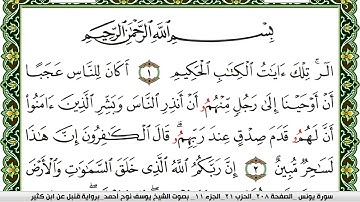 بِسْمِ اللَّهِ الرَّحْمَٰنِ الرَّحِيمِ
الٓر ۚ تِلْكَ ءَايَٰتُ الْكِتَٰبِ الْحَكِيمِ ١ أَكَانَ لِلنَّاسِ عَجَبًا
أَنْ أَوْحَيْنَا إِلَىٰ رَجُلٍ مِّنْهُمُۥ أَنْ أَنذِرِ النَّاسَ وَبَشِّرِ الَّذِينَ ءَامَنُوا
أَنَّ لَهُمُۥ قَدَمَ صِدْقٍ عِندَ رَبِّهِمُۥ ۗ قَالَ الْكَٰفِرُونَ إِنَّ هَٰذَا
لَسَٰحِرٌ مُّبِينٌ ٢ إِنَّ رَبَّكُمُ اللَّهُ الَّذِي خَلَقَ السَّمَٰوَٰتِ وَالْأَرْضَ
سورة يونس _ الصفحة ٢٠٨_ الحزب ٢١_ الجزء ١١_ بصوت الشيخ يوسف نوح أحمد _ برواية قنبل عن ابن كثير